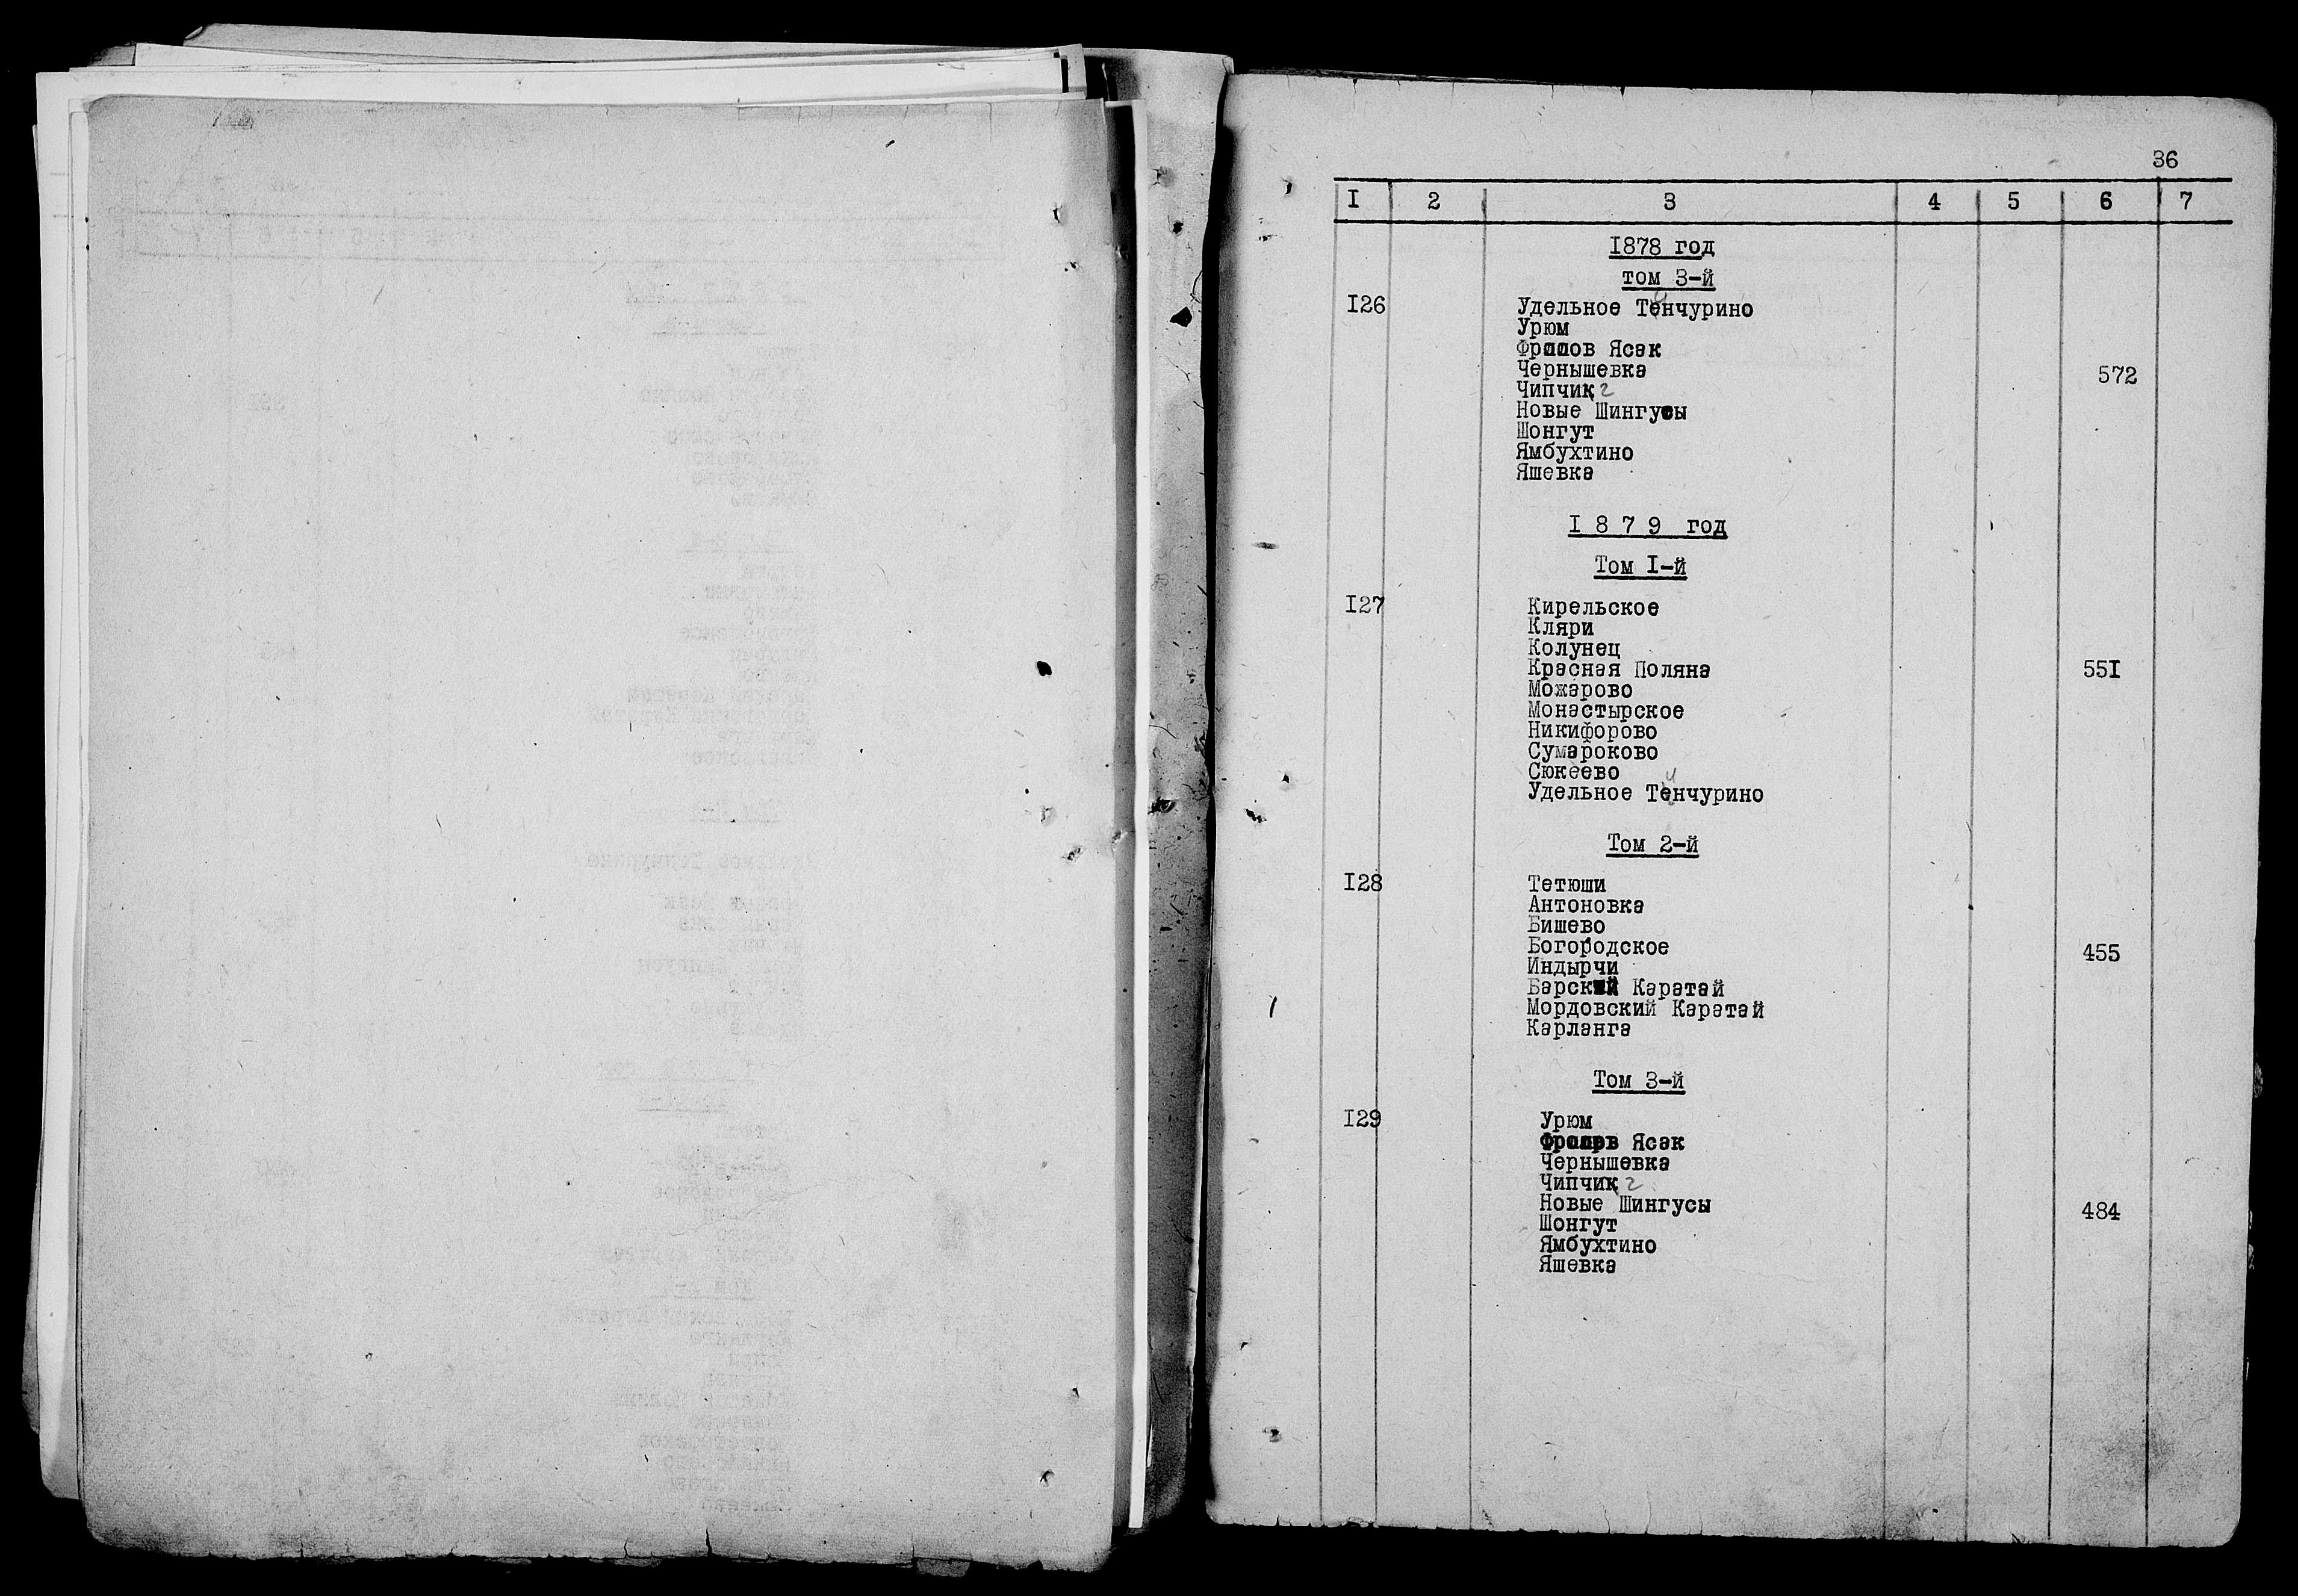 36
I 2 3 4 5 6 7
I878 год
том 3-й
I26 Удельное Тенчурино
Урюм
Фролов Ясак
Чернышевка 572
Чипчик
Новые Шингусы
Шонгут
Ямбухтино
Яшевка
I 8 7 9 год
Том I-й
I27 Кирельское
Кляри
Колунец
Красная Поляна 55I
Можарово
Монастырское
Никифорово
Сумароково
Сюкеево
Удельное Тенчурино
Том 2-й
I28 Тетюши
Антоновка
Бишево
Богородское 455
Индырчи
Барский Каратай
Мордовский Каратай
Карланга
Том 3-й
I29 Урюм
Фролов Ясак
Чернышевка
Чипчик
Новые Шингусы 484
Шонгут
Ямбухтино
Яшевка